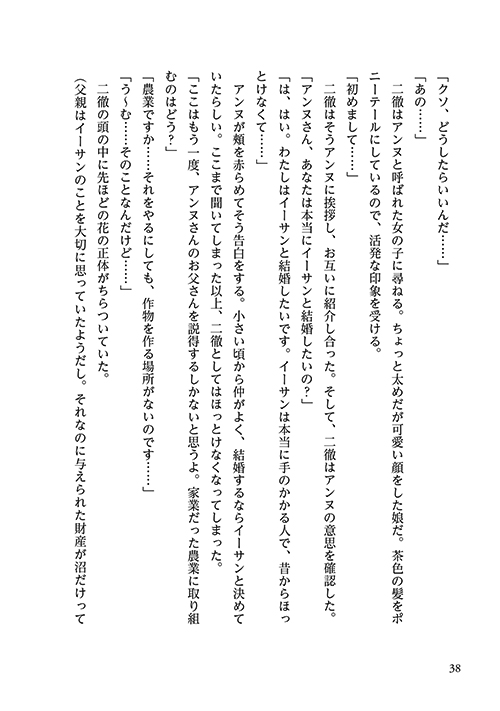 「クソ、どうしたらいいんだ……」
「あの……」
　二徹はアンヌと呼ばれた女の子に尋ねる。ちょっと太めだが可愛い顔をした娘だ。茶色の髪をポ
ニーテールにしているので、活発な印象を受ける。
「初めまして……」
　二徹はそうアンヌに挨拶し、お互いに紹介し合った。そして、二徹はアンヌの意思を確認した。
「アンヌさん、あなたは本当にイーサンと結婚したいの？」
「は、はい。わたしはイーサンと結婚したいです。イーサンは本当に手のかかる人で、昔からほっ
とけなくて……」
　アンヌが頬を赤らめてそう告白をする。小さい頃から仲がよく、結婚するならイーサンと決めて
いたらしい。ここまで聞いてしまった以上、二徹としてはほっとけなくなってしまった。
「ここはもう一度、アンヌさんのお父さんを説得するしかないと思うよ。家業だった農業に取り組
むのはどう？」
「農業ですか……それをやるにしても、作物を作る場所がないのです……」
「う～む……そのことなんだけど……」
　二徹の頭の中に先ほどの花の正体がちらついていた。
（父親はイーサンのことを大切に思っていたようだし。それなのに与えられた財産が沼だけって
38